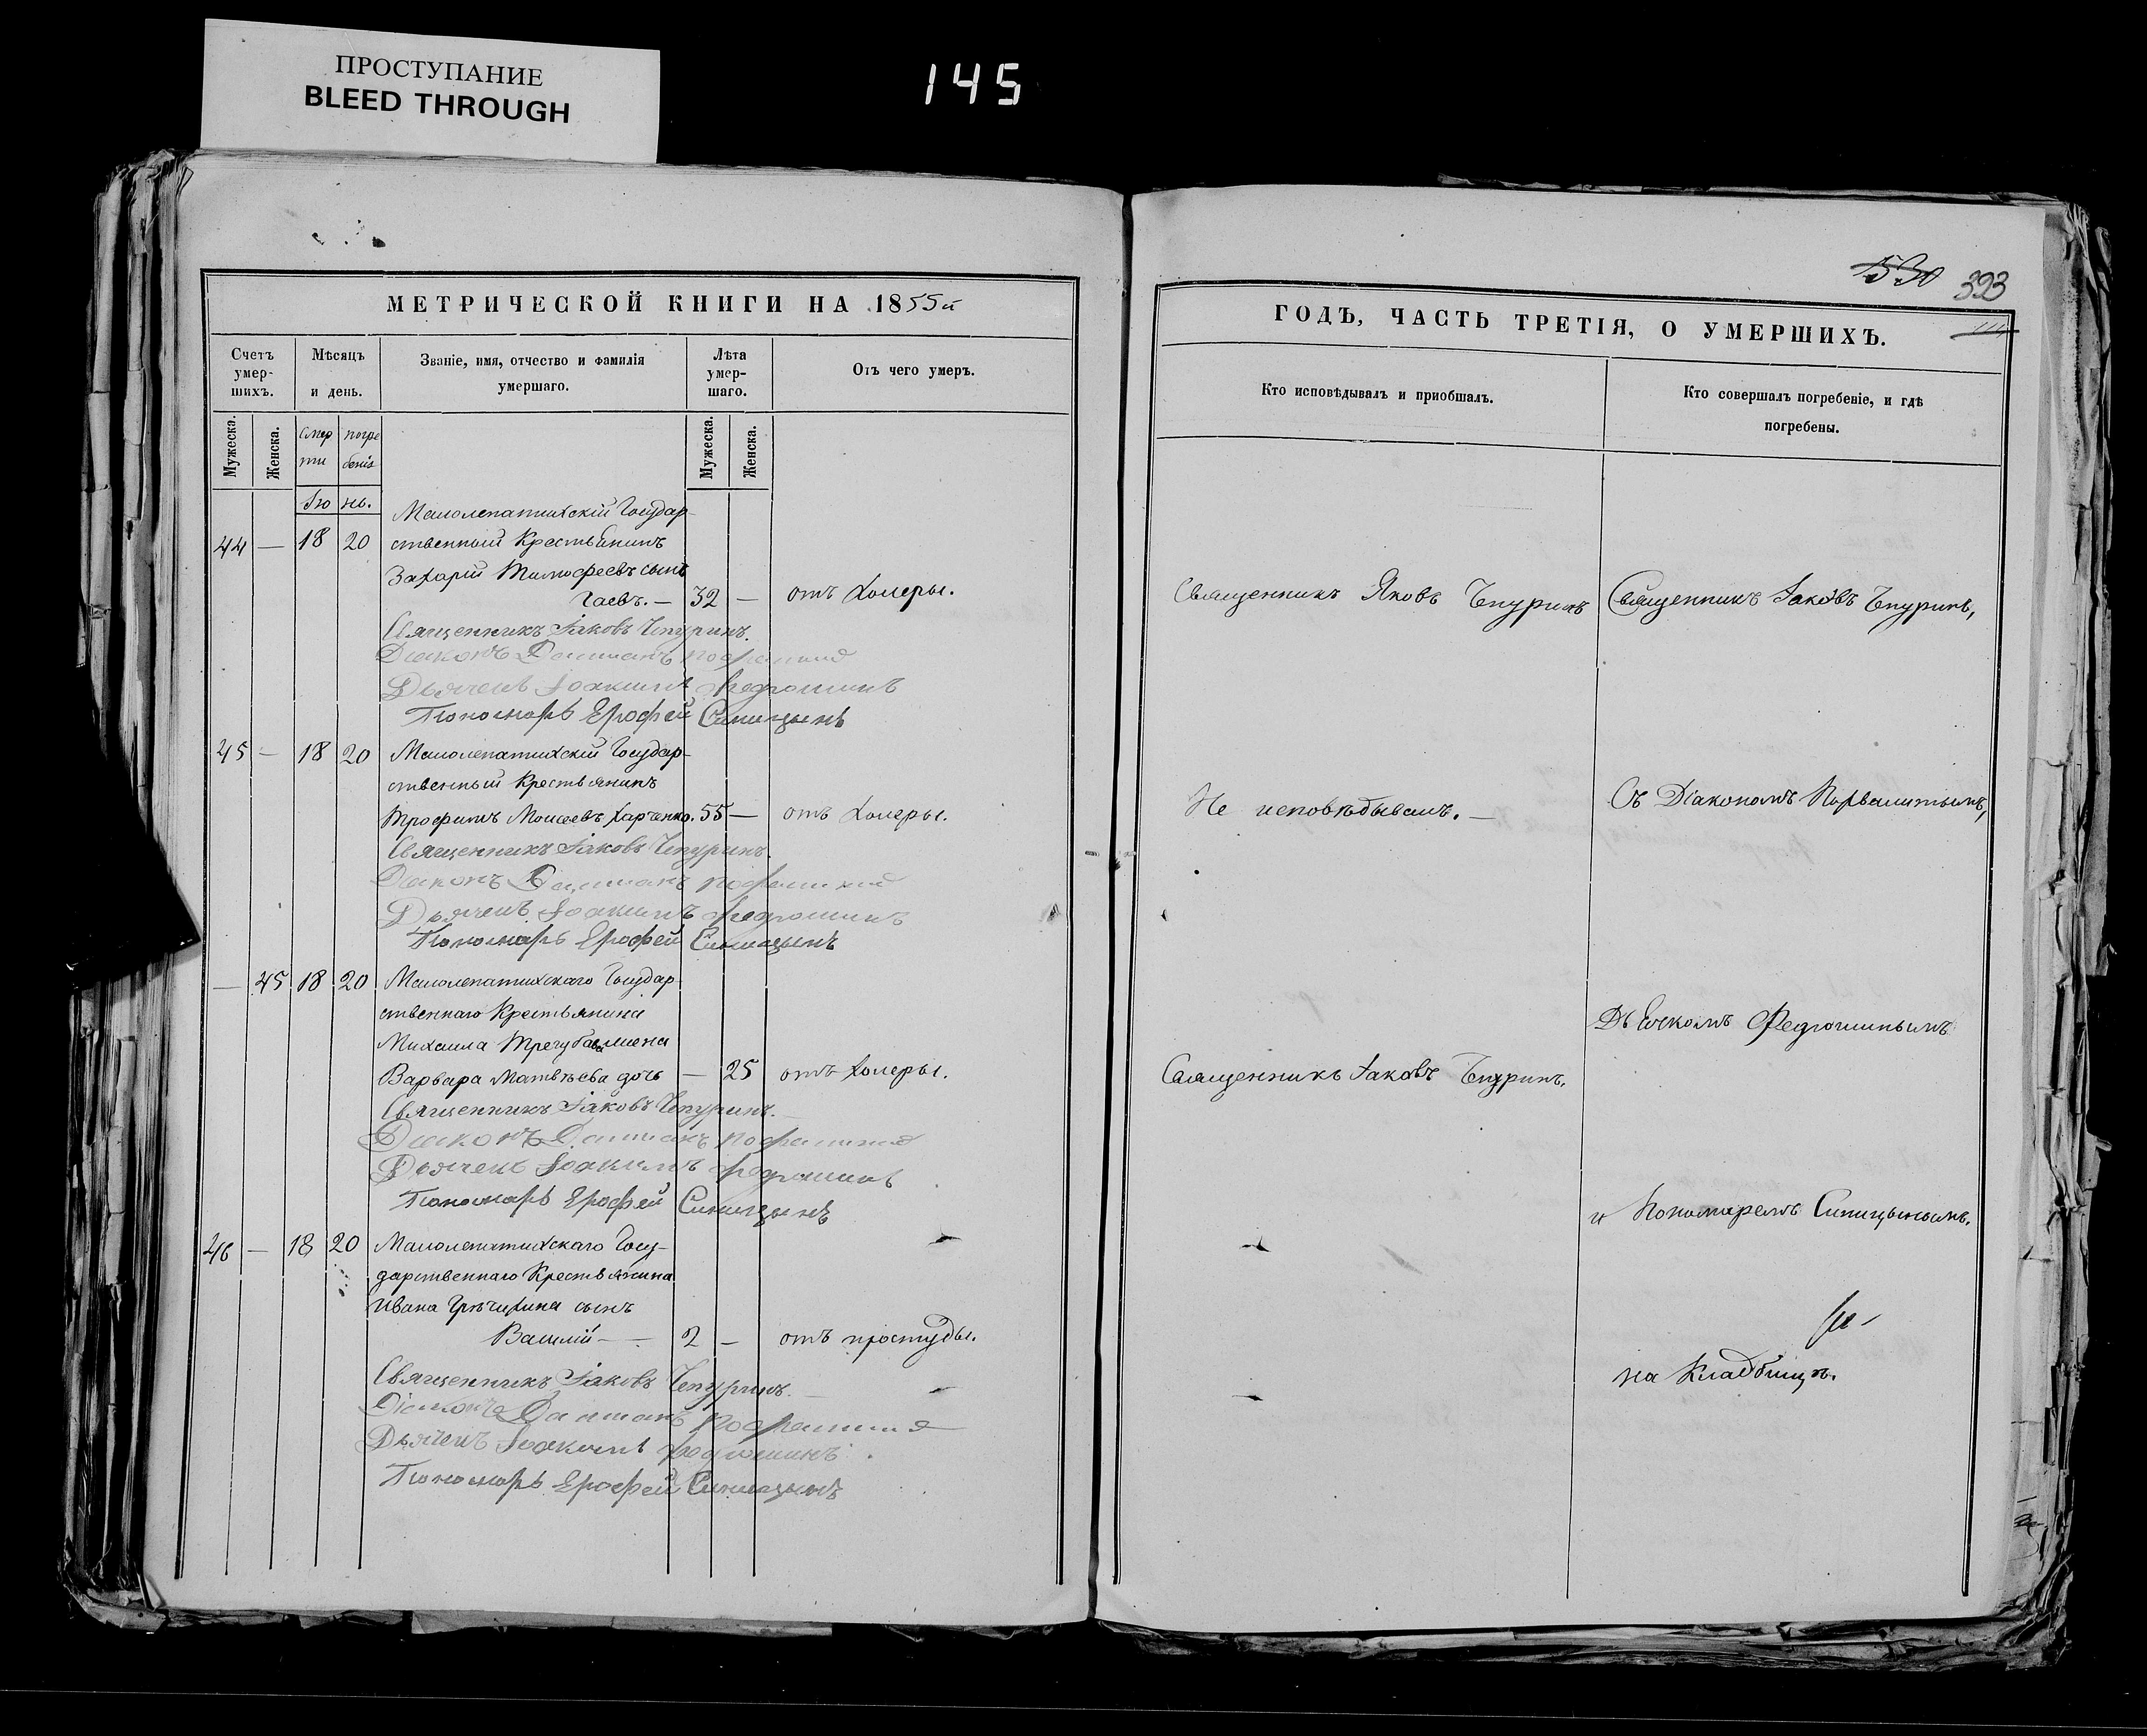 ПРОСТУПАНИЕ
BLEED THROUGH
145
МЕТРИЧЕСКОЙ КНИГИ НА 1855й
Счетъ умер-шихъ.
Мѣсяцъ и день.
Званіе, имя, отчество и фамилія умершаго.
Лѣта умер-шаго.
Отъ чего умеръ.
Мужеска.
Женска.
Смер
ти
погре
бенія
Мужеска.
Женска.
Ію нь.
Малолепатихскій Государ-
44 — 18 20 ственный Крестьянинъ
Захарій Тимофеевъ сынъ
Гаевъ. — 32 — отъ холеры.
Священникъ Іаковъ Чепуринъ.
Діаконъ Даміанъ
Дьячекъ Іоакимъ Федюшинъ
Пономарь Ерофей Синицынъ
45 — 18 20 Малолепатихскій Государ-
ственный Крестьянинъ
Трофимъ Моисеевъ Харченко. 55 — отъ холеры.
Священникъ Іаковъ Чепуринъ.
Діаконъ Даміанъ
Дьячекъ Іоакимъ Федюшинъ
Пономарь Ерофей Синицынъ
— 45 18 20 Малолепатихскаго Государ
ственнаго Крестьянина
Михаила жена
Варвара Матвѣева дочь — 25 отъ холеры.
Священникъ Іаковъ Чепуринъ.
Діаконъ Даміанъ
Дьячекъ Іоакимъ Федюшинъ
Пономарь Ерофей Синицынъ
46 — 18 20 Малолепатихскаго Госу-
дарственнаго Крестьянина
Ивана Гречихина сынъ
Василій — 2 — отъ простуды.
Священникъ Іаковъ Чепуринъ.
Діаконъ Даміанъ
Дьячекъ Іоакимъ Федюшинъ
Пономарь Ерофей Синицынъ
530 393
ГОДЪ, ЧАСТЬ ТРЕТІЯ, О УМЕРШИХЪ.
Кто исповѣдывалъ и пріобщалъ.
Кто совершалъ погребеніе, и гдѣ
погребены.
Священникъ Яковъ Чепуринъ
Священникъ Іаковъ Чепуринъ,
Не исповѣдыванъ. —
Съ Діакономъ
Дьячкомъ Федюшинымъ
Священникъ Іаковъ Чепуринъ.
и Пономаремъ Синицынымъ.
на Кладбищѣ.